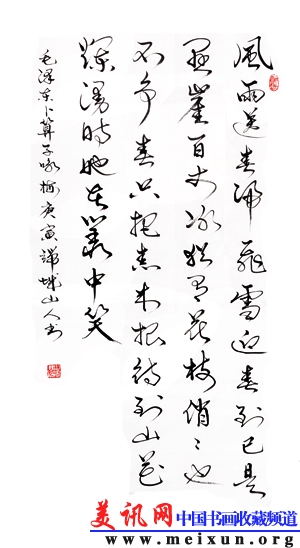 風雨送春归飛雪迎春到已是
悬崖百丈冰犹有花枝俏〻也
不争春只把春来报待到山花
爛漫時她在叢中笑
毛泽东卜算子咏梅庚寅城山人书
美讯网 中国书画收藏频道
www.meixun.org